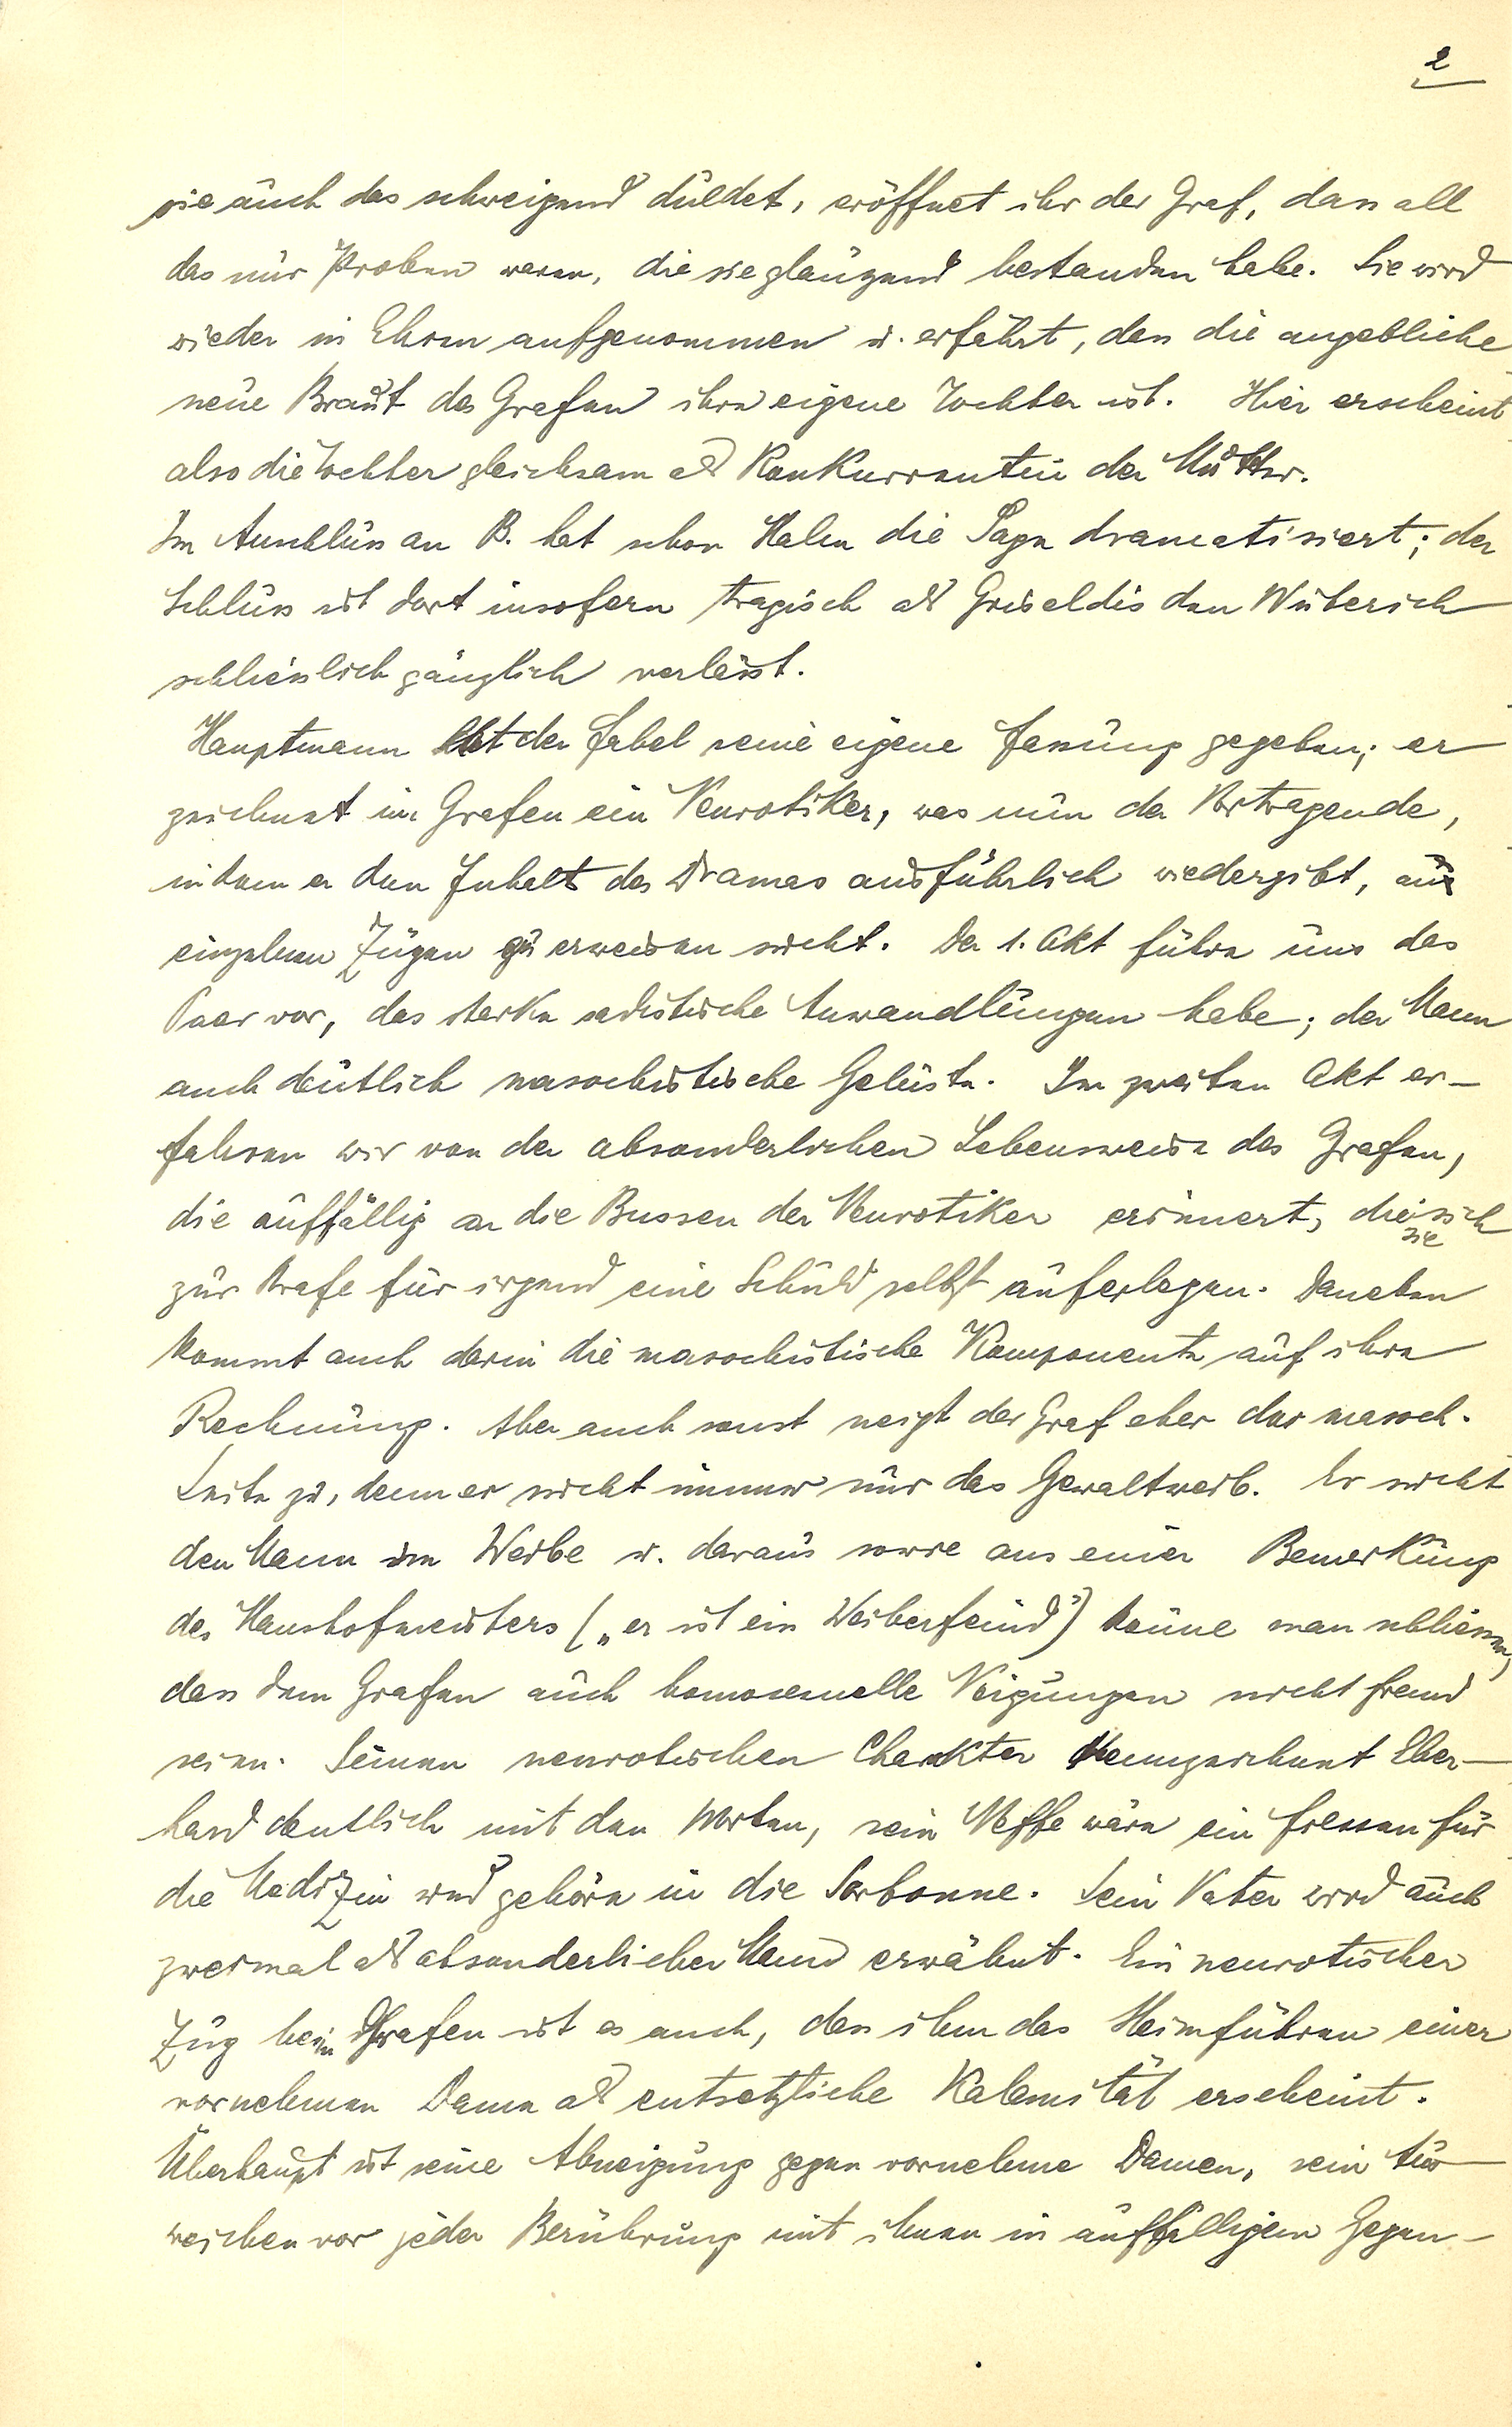 2
sie auch das schweigend duldet, eröffnet ihr der Graf, dass all
das nur Proben waren, die sie glänzend bestanden habe. Sie wird
wieder in Ehren aufgenommen u. erfährt, dass die angebliche
neue Braut des Grafen ihre eigene Tochter ist. Hier erscheint
also die Tochter gleichsam als Konkurrentin der Mutter.
Im Anschluss an B. hat schon Halm die Sage dramatisiert; der
Schluss ist dort insofern tragisch als Griseldis den Wüterich
schliesslich gänzlich verlässt.
Hauptmann hat der Fabel seine eigene Fassung gegeben; er
zeichnet im Grafen ein Neurotiker, was nun der Vortragende,
indem er den Inhalt des Dramas ausführlich wiedergibt, aus
einzelnen Zügen zu erweisen sucht. Der 1. Akt führe uns das
Paar vor, das starke sadistische Anwandlungen habe; der Mann
auch deutlich masochistische Gelüste. Im zweiten Akt er-
fahren wir von der absonderlichen Lebensweise des Grafen,
die auffällig an die Bussen der Neurotiker erinnert, die sie sich
zur Strafe für irgend eine Schuld selbst auferlegen. Daneben
kommt auch darin die masochistische Komponente auf ihre
Rechnung. Aber auch sonst neigt der Graf eher der masoch.
Seite zu, denn er sucht immer nur das Gewaltweib. Er sucht
den Mann im Weibe u. daraus sowie aus einer Bemerkung
des Haushofmeisters („er ist ein Weiberfeind") könne man schliessen,
dass dem Grafen auch homosexuelle Neigungen nicht fremd
seien. Seinen neurotischen Charakter kennzeichnet Eber-
hard deutlich mit den Worten, sein Neffe wäre ein Fressen für
die Medizin und gehöre in die Sorbonne. Sein Vater wird auch
zweimal als absonderlicher Mann erwähnt. Ein neurotischer
Zug beim Grafen ist es auch, dass ihm das Heimführen einer
vornehmen Dame als entsetzliche Kalamität erscheint.
Überhaupt ist seine Abneigung gegen vornehme Damen, sein Aus-
weichen vor jeder Berührung mit ihnen in auffälligem Gegen-